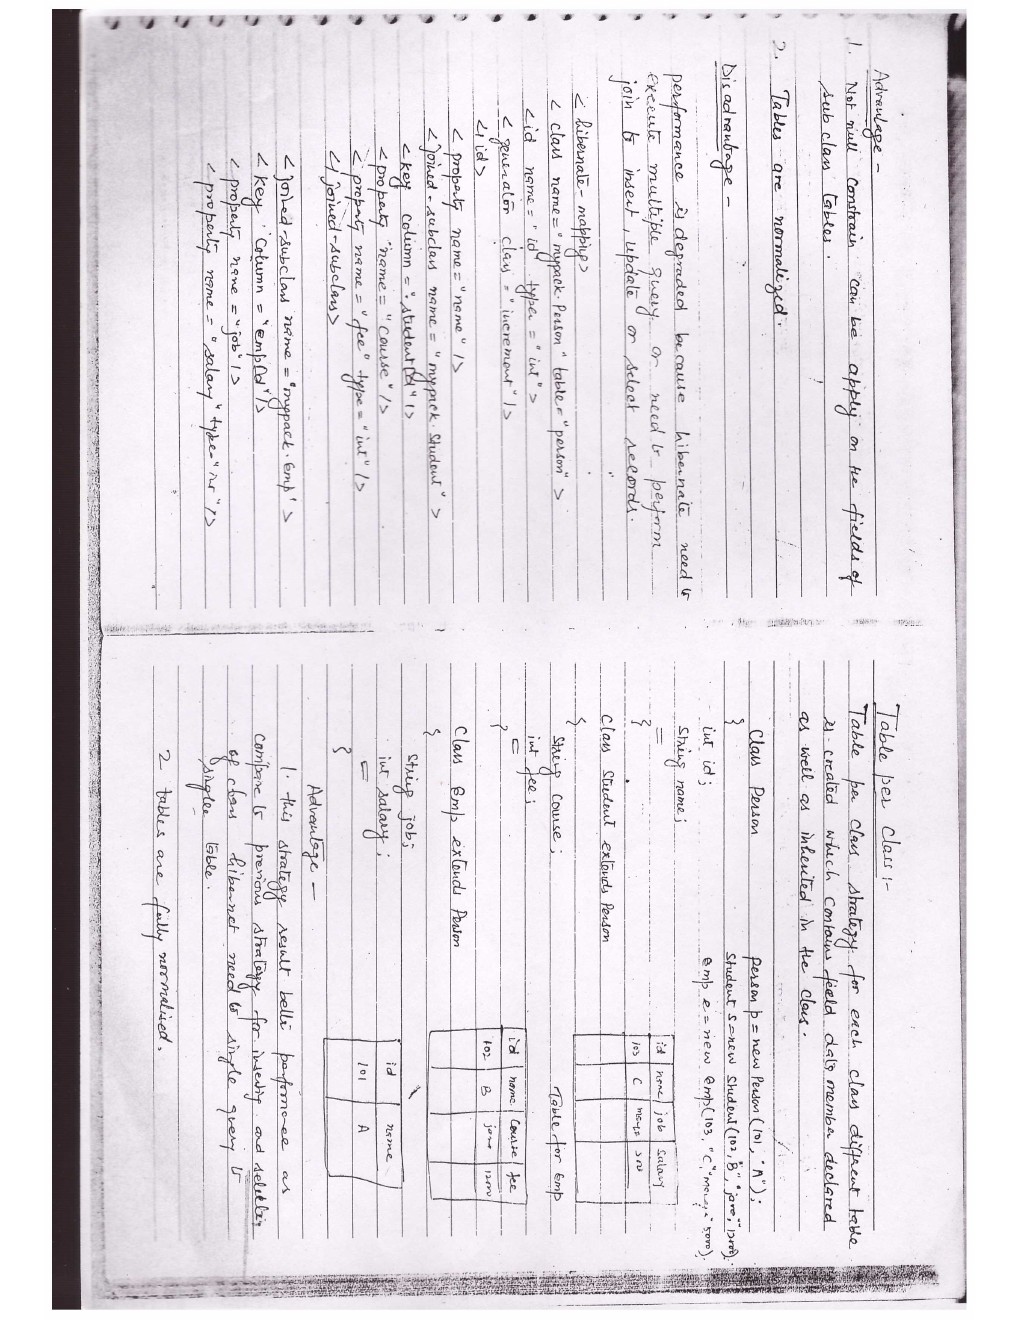 Advantage -
1. Not null constrain can be apply on the fields of
sub class tables.
2. Tables are normalized.
Disadvantage -
performance is degraded because hibernate need to
execute multiple query or need to perform
join to insert, update or select records.
< hibernate-mapping>
< class name="mypack.Person" table="person" >
<id name="id" type="int">
< generator class="increment"/>
</id>
< property name="name" />
<joined-subclass name="mypack.Student" >
<key column="studentId"/>
<property name="course"/>
< property name="fee" type="int"/>
</joined-subclass>
<joined-subclass name="mypack.Emp" >
< key column="empId"/>
< property name="job"/>
< property name="salary" type="int"/>
Table per Class :-
Table per class strategy for each class diffrent table
is created which contains field data member declared
as well as inherited in the class.
Class Person
{
int id;
String name;
=
}
Class Student extends Person
{
String course;
int fee;
=
}
Class Emp extends Person
{
String job;
int salary;
=
}
person p = new Person(101, "A");
Student s=new Student(102, "B", "java", 12000).
Emp e = new Emp(103, "C", 5000).
id name job salary
103 C
Table for Emp
id name course fee
102 B java 12000
id name
101 A
Advantage -
1. this strategy result performance as
compare to previous strategy for inserting and
of class hibernet need to single query to
table.
2 tables are fully normalised.